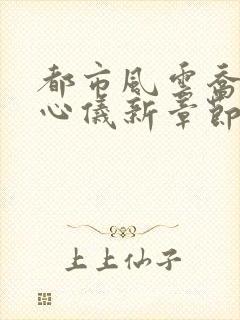 都市風雲喬
心儀新章節
上上仙子